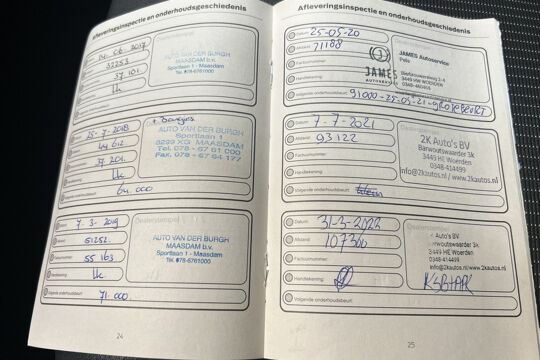 Afleveringsinspectie en onderhoudsgeschiedenis
06. 2017
32253
37 101
AUTO VAN DER BURGH
MAASDAM b.v.
Sportlaan 1 - Maasdam
Tel. 078-6761000
25-7-2018
44 612
37 201
64.000
AUTO VAN DER BURGH
Sportlaan 1
3299 XG MAASDAM
Tel. 078 - 67 61 000
Fax. 078 - 67 64 177
Dealerstempel
7-3-2019
51252
55 163
71.000
AUTO VAN DER BURGH
MAASDAM b.v.
Sportlaan 1 - Maasdam
Tel. 078-6761000
24
Afleveringsinspectie en onderhoudsgeschiedenis
Datum: 25-05-20
Afstand: 71188
Factuurnummer:
Handtekening:
JAMES
JAMES Autoservice
Pels
3449 HW WOERDEN
0348-460464
Volgende onderhoudsbeurt: 91000-25-05-21-grote beurt
Datum: 7-7-2021
Afstand: 93122
Factuurnummer:
Handtekening:
2K Auto's BV
Barwoutswaarder 3k
3449 HE Woerden
0348-414499
info@2kautos.nl / www.2kautos.nl
Volgende onderhoudsbeurt:
Datum: 31-3-2022
Afstand: 107366
Factuurnummer:
Handtekening:
Dealerstempel
Auto's BV
3449 HE Woerden
0348-414499
info@2kautos.nl / www.2kautos.nl
Volgende onderhoudsbeurt:
25